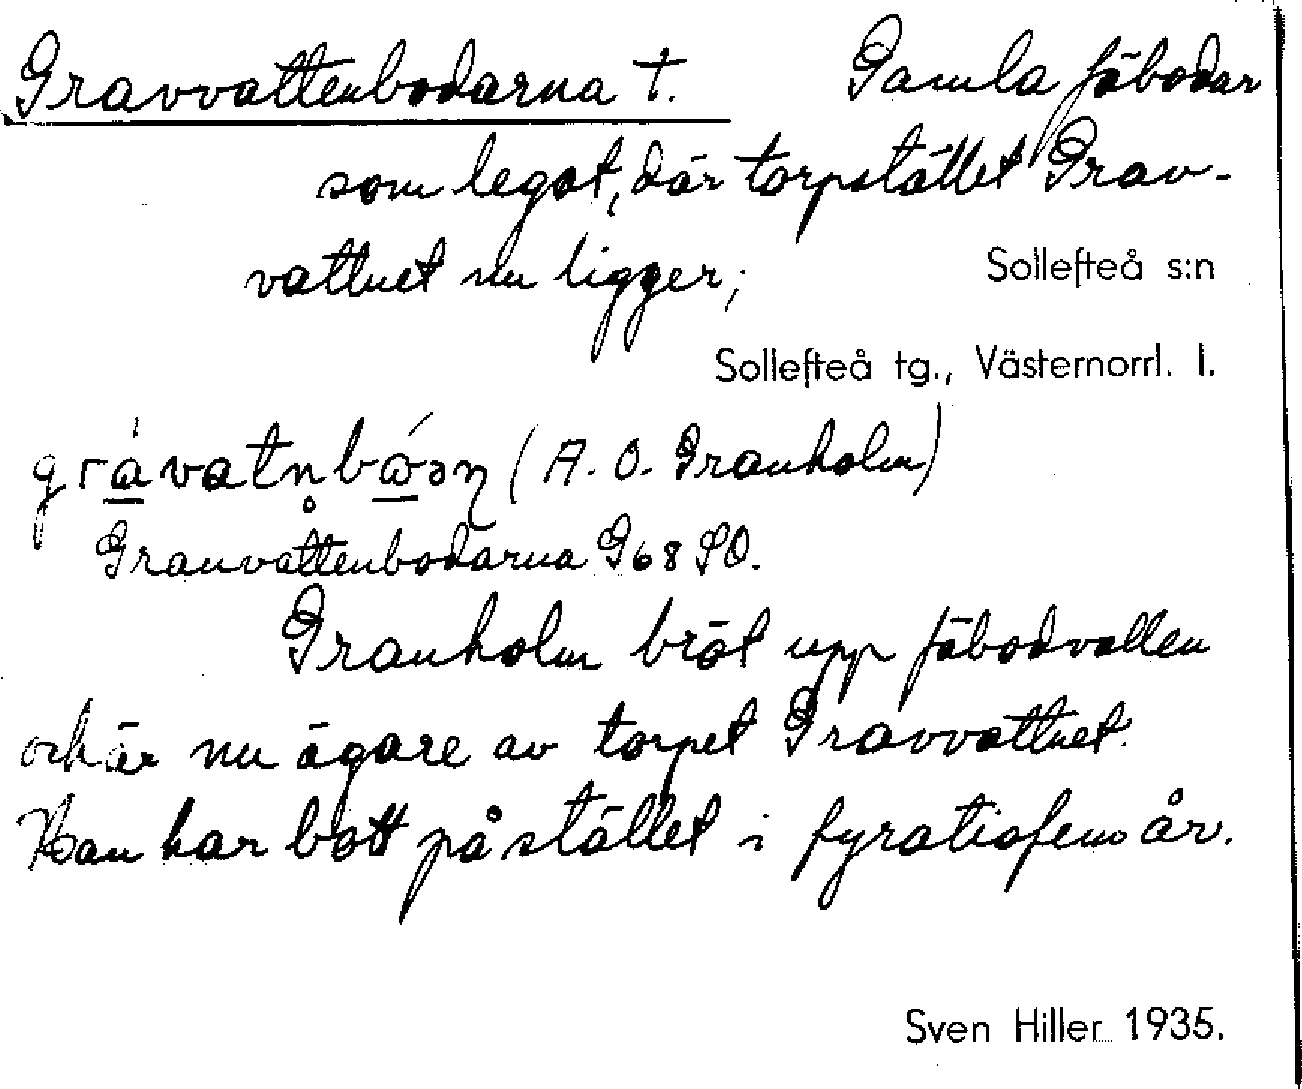 Gravvattenbodarna †. Gamla fäbodar
som legat, där torpstället Grav-
vattnet nu ligger;
Sollefteå s:n
Sollefteå tg., Västernorrl. l.
(A. O. Granholm)
Granvattenbodarna G68 SO.
Granholm bröt upp fäbodvallen
och är nu ägare av torpet Gravvattnet.
Han har bott på stället i fyratiofem år.
Sven Hiller 1935.